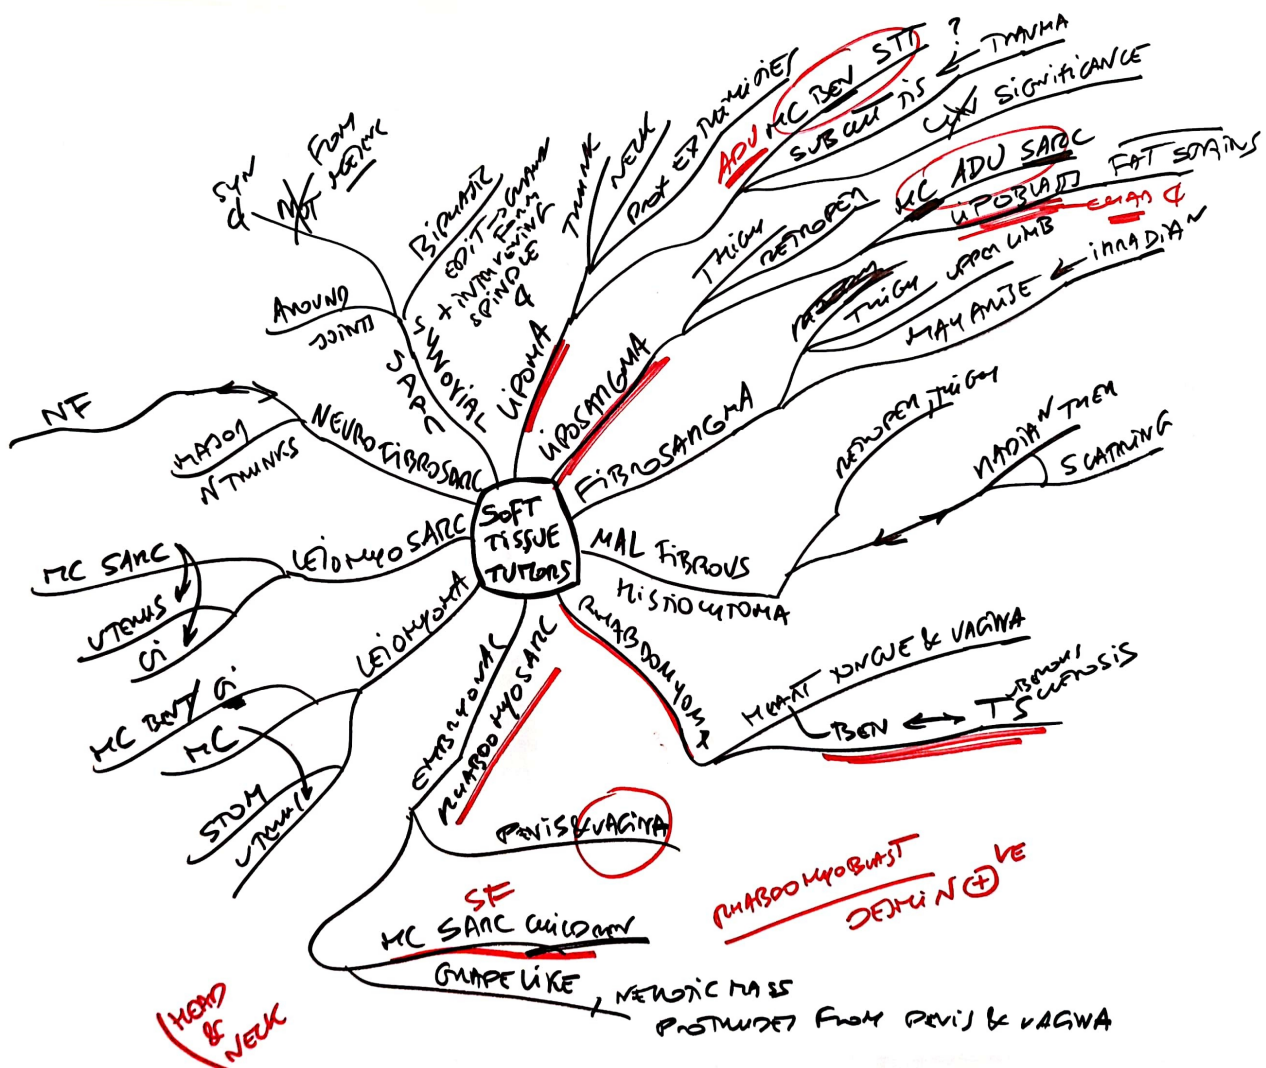 SOFT
TISSUE
TUMORS
LIPOMA
TRUNK
NECK
PROX EXTREMITIES
ADU MC BEN STT ?
SUBCUT TIS
TRAUMA
SIGNIFICANCE
LIPOSARGMA
THIGH
RETROPER
MC ADU SARC
LIPOBLASTS
FAT STAINS
CHAR ¢
FIBROSARGMA
THIGH UPPER LIMB
MAY ARISE
IRRADIAN
MAL FIBROUS
HISTIOCYTOMA
RETROPER, THIGH
RADIAN THER
SCARRING
RHABDOMYOMA
HEART TONGUE & VAGINA
BEN
TUBEROUS
SCLEROSIS
EMBRYONAL
RHABDOMYOSARC
PENIS & VAGINA
SF
MC SARC CHILDREN
GRAPE LIKE
NECROTIC MASS
PROTRUDES FROM PENIS & VAGINA
RHABDOMYOBLAST
DESMIN + VE
HEAD
&
NECK
LEIOMYOMA
MC BENT GI
MC
STOM
UTERUS
LEIOMYO SARC
MC SARC
UTERUS
GI
NEUROFIBROSARC
NF
MAJOR
N TRUNKS
SYNOVIAL
SARC
AROUND
JOINTS
SYN
¢
NOT
FROM
BIPHASIC
EPIT → GLAND
FORM
+ INTERVENING
SPINDLE
¢